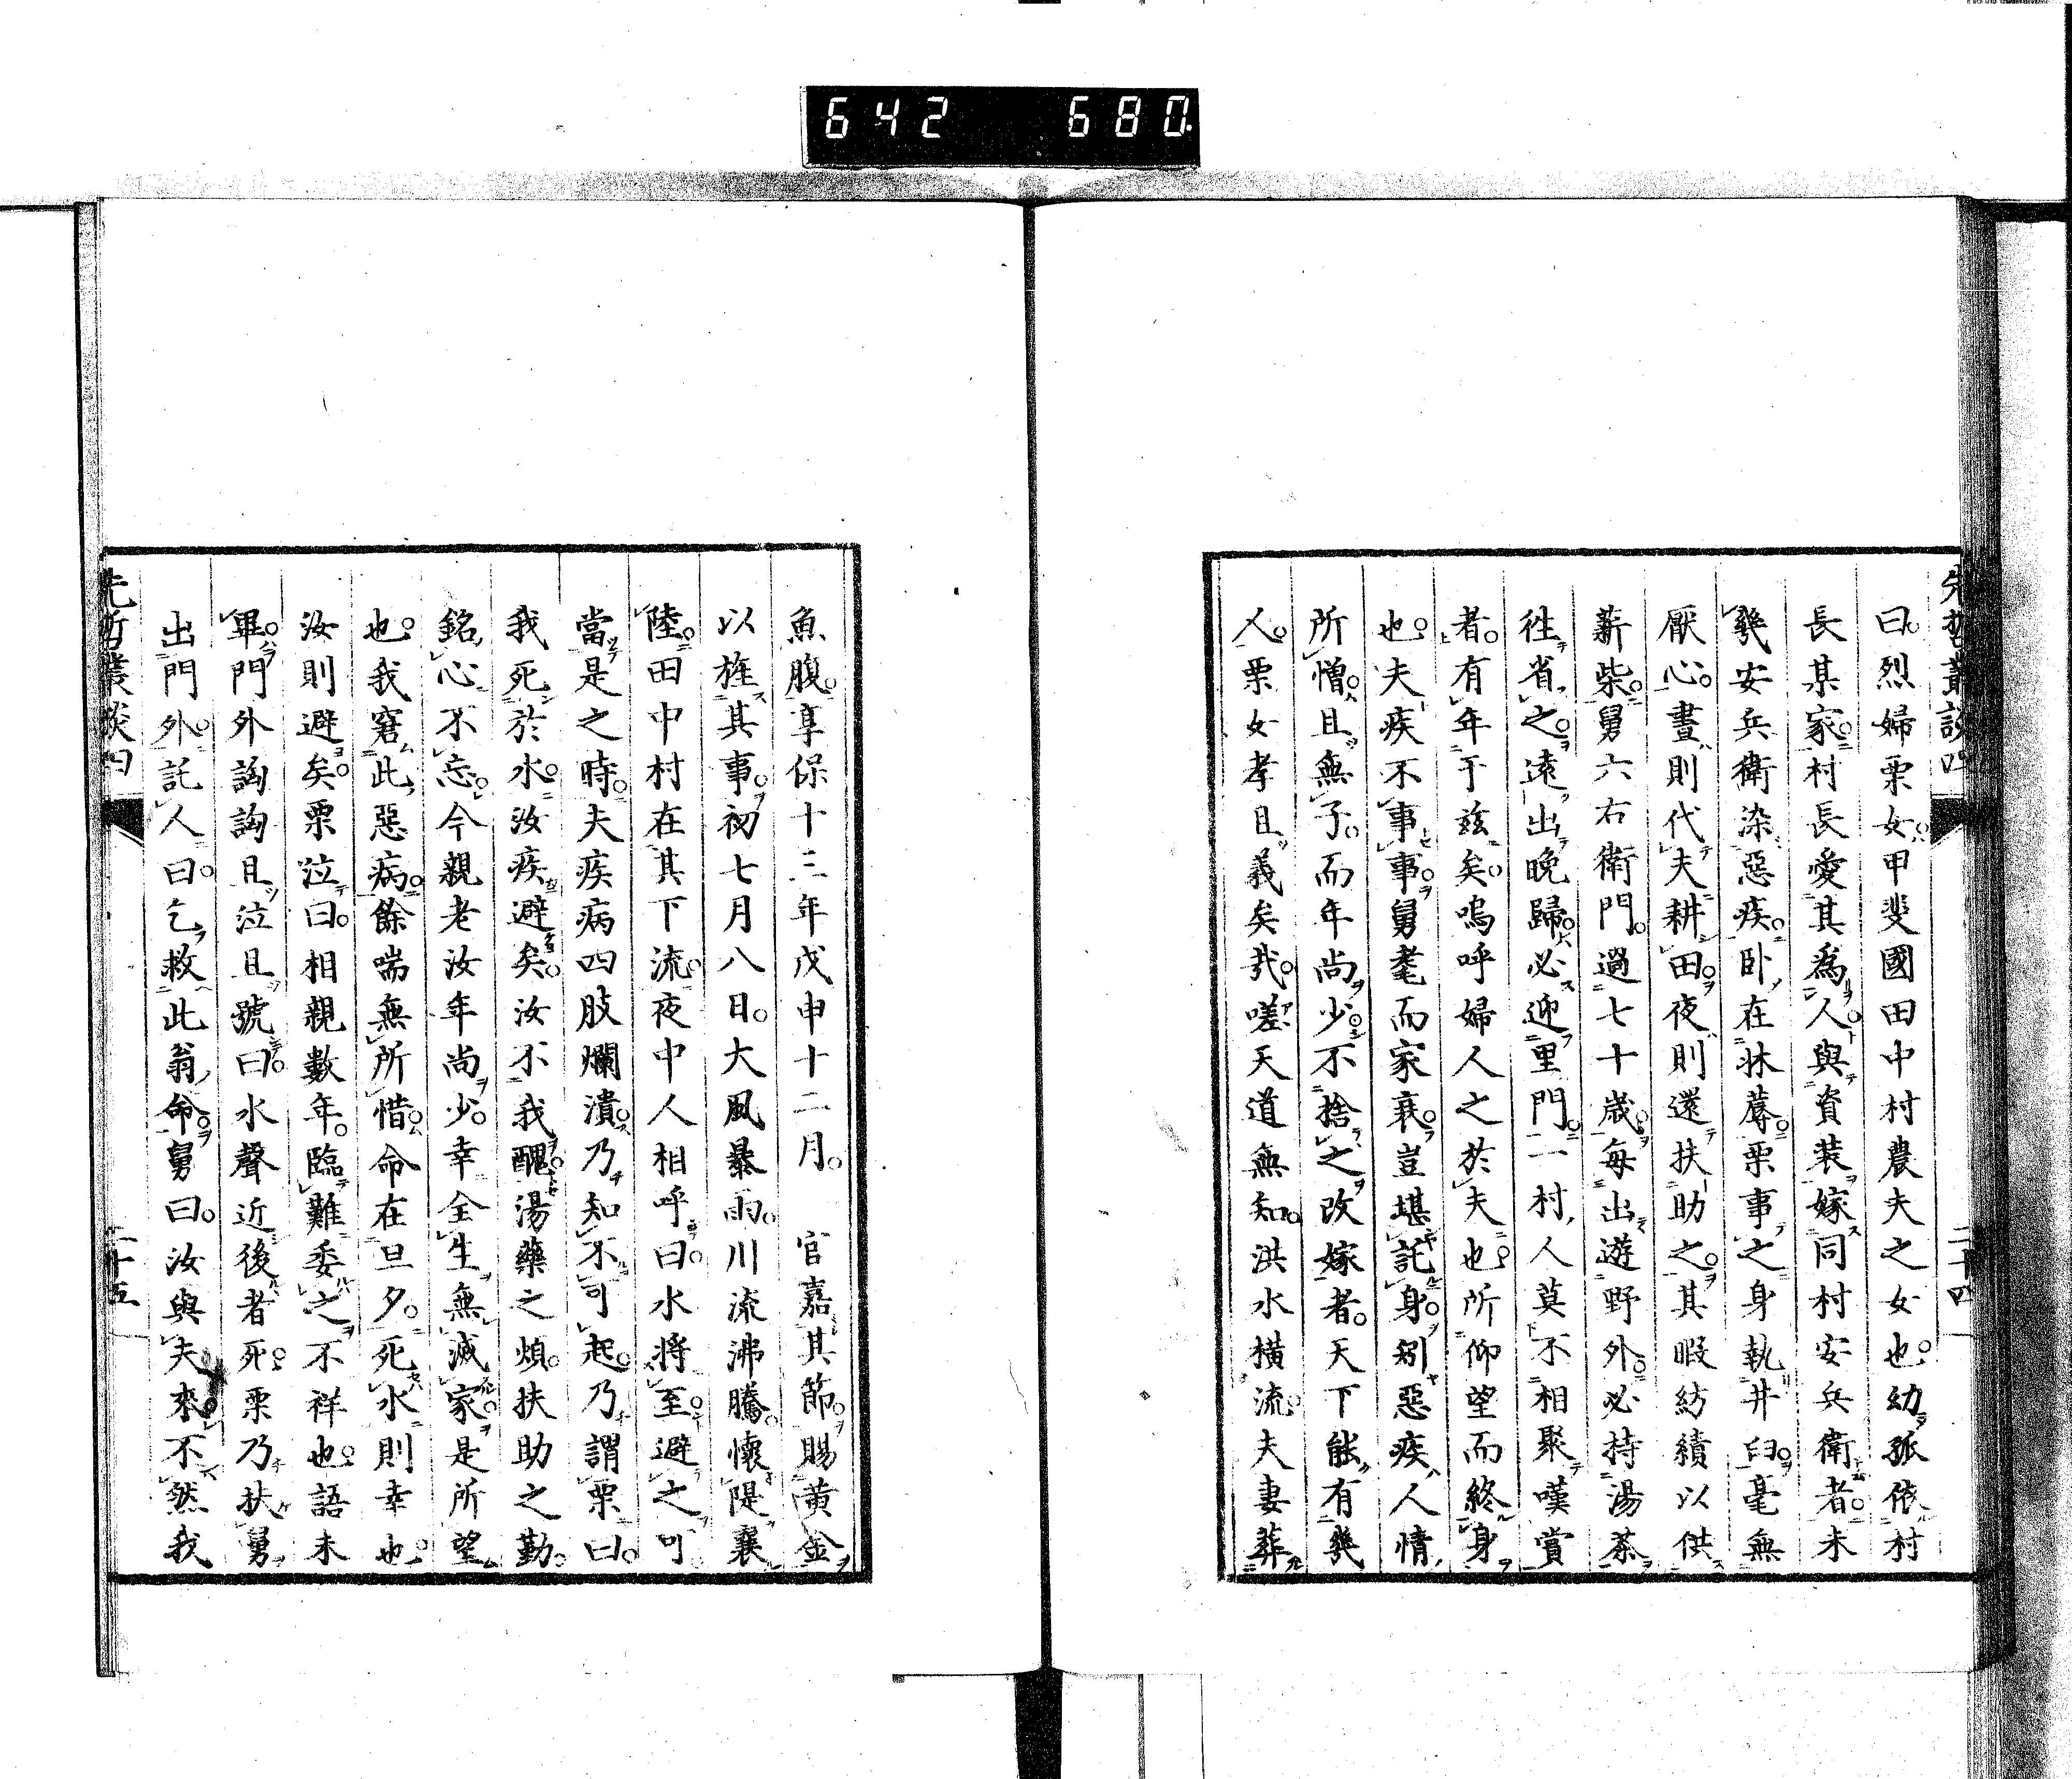 642 680
先哲叢談四
二十四
曰。烈婦栗女。甲斐國田中村農夫之女也。幼孤依村
長某家。村長愛其爲人。與資装嫁同村安兵衛者。未
幾安兵衛染惡疾。臥在牀蓐。栗事之身執井臼。毫無
厭心。晝則代夫耕田。夜則還扶助之。其暇紡績以供
薪柴。舅六右衛門。過七十歳。毎出遊野外。必持湯茶
徃省之。遠出晩歸。必迎里門。一村人莫不相聚嘆賞
者。有年于兹矣。嗚呼婦人之於夫也。所仰望而終身
也。夫疾不事事。舅耄而家衰。豈堪託身。矧惡疾人情
所憎。且無子。而年尚少。不捨之改嫁者。天下能有幾
人。栗女孝且義矣哉。嗟天道無知。洪水横流。夫妻葬
魚腹。享保十三年戊申十二月。 官嘉其節。賜黄金
以旌其事。初七月八日。大風暴雨。川流沸騰。懷隄襄
陸。田中村在其下流。夜中人相呼曰。水將至。避之可
當是之時。夫疾病四肢爛潰。乃知不可起。乃謂栗曰。
我死於水。汝疾避矣。汝不我醜。湯藥之煩。扶助之勤。
銘心不忘。今親老汝年尚少。幸全生無滅家。是所望
也。我窘此惡病。餘喘無所惜。命在旦夕。死水則幸也。
汝則避矣。栗泣曰。相親數年。臨難委之不祥也。語未
畢。門外訩訩且泣且號曰。水聲近後者死。栗乃扶舅
出門外。託人曰。乞救此翁命。舅曰。汝與夫來。不然我
先哲叢談四
二十五